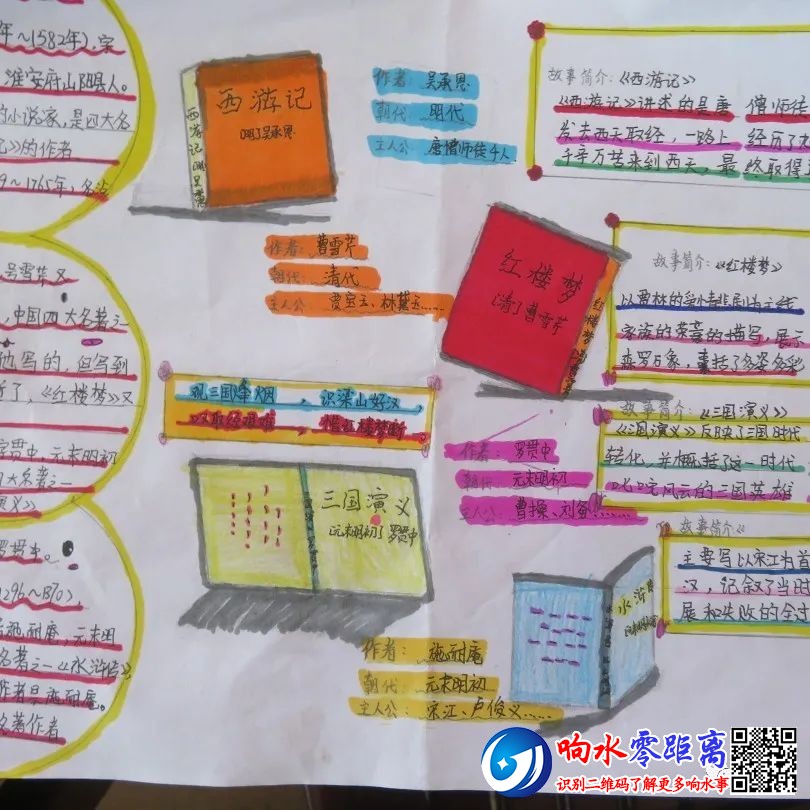 年~1582年),字
淮安府山阳县人。
的小说家,是四大名
的作者
9~1765年,名沾
中国四大名著之一
他写的,但写到
近了,《红楼梦》又
罗贯中,元末明初
四大名著之一
演义》
罗贯中。
1296~1370,
施耐庵,元末明
名著之一《水浒传》,
作者是施耐庵。
名著作者
西游记
[明]吴承恩
西游记
作者: 吴承恩
朝代: 明代
主人公: 唐僧师徒4人
故事简介:《西游记》
《西游记》讲述的是唐 僧师徒
发去西天取经,一路上 经历了
千辛万苦来到西天,最 终取得
作者: 曹雪芹
朝代: 清代
主人公: 贾宝玉、林黛玉......
红楼梦
[清]曹雪芹
红楼梦
故事简介:《红楼梦》
家族的荣衰的描写,展示
森罗万象,囊括了多姿多彩
观三国烽烟 , 识梁山好汉,
叹取经艰难
三国演义
元末明初 罗贯中
作者: 罗贯中
朝代: 元末明初
主人公: 曹操、刘备......
故事简介:《三国演义》
《三国演义》反映了三国时代
转化,并概括了这一时代
叱咤风云的三国英雄
水浒
作者: 施耐庵
朝代: 元末明初
主人公: 宋江、卢俊义......
故事简介《
主要写以宋江为首
汉,记叙了当
展和失败的全过
响水零距离
识别二维码了解更多响水事